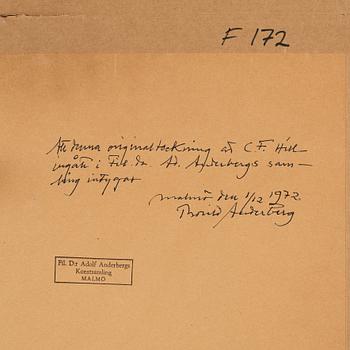 F 172
Att denna originalteckning av C F. Hill
ingått i Fil. dr. Ad. Anderbergs sam-
ling intygar
Malmö den 1/12 1972.
Anderberg
Fil. D:r Adolf Anderbergs
Konstsamling
MALMÖ